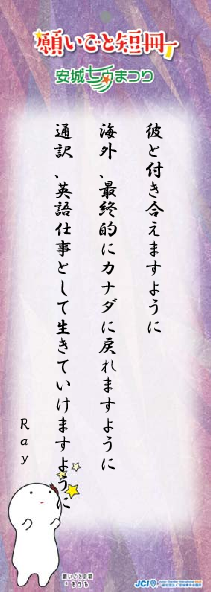 願いごと短冊
安城七夕まつり
彼と付き合えますように
海外、最終的にカナダに戻れますように
通訳、英語仕事として生きていけますように
Ray
JCI